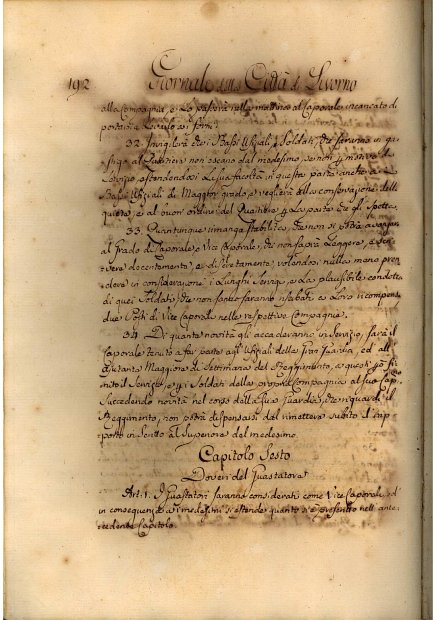 192 Giornale della Città di Livorno
alla Compagnia, e lo passerà nella medesima al Caporale incaricato di
portarsi a levarlo ai fermi.
32. Invigilerà che i Bassi Ufiziali, e Soldati, che saranno in ga-
stigo al Quartiere non escano dal medesimo, se non per motivo di
Servizio, estendendosi la sua facoltà in questa parte anche a
Bassi Ufiziali di Maggior grado, e veglierà alla conservazione della
quiete, e al buon ordine del Quartiere per la parte che gli spetta.
33. Quantunque rimanga stabilito, che non si abbia a avanzare
al Grado di Caporale, o Vice Caporale, chi non saprà Leggere, e Scri-
vere decentemente, e direttamente, volendosi nulla meno pren-
dere in considerazione i Lunghi Servizi, e la plausibile condotta
di quei Soldati, che non sanno saranno a Loro ricompensa
due Posti di Vice Caporale nelle respettive Compagnie.
34. Di quante novità gli accaderanno in Servizio, sarà il
Caporale tenuto a far parte agli Ufiziali della Gran Guardia, ed all'
Ajutante Maggiore di Settimana del Reggimento, e questi
il Servizio, e per i Soldati della propria Compagnia al suo Cap.
Succedendo novità nel corso della sua Guardia, che riguardi il
Reggimento, non potrà dispensarsi dal rimettere subito il rap-
porto in Scritto al Superiore del medesimo.
Capitolo Sesto
Doveri del Guastatore
Art. 1. I Guastatori saranno considerati come Vice Caporale, ed
in conseguenza a i medesimi si estende quanto si è prescritto nell'ante-
cedente Capitolo.